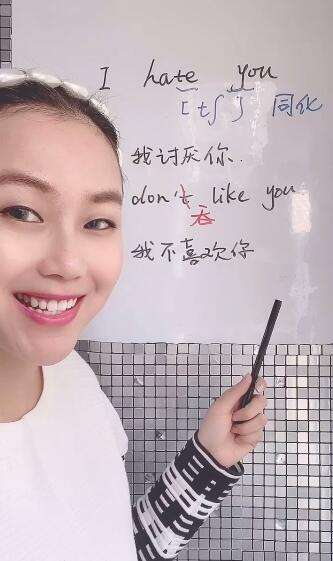 I hate you
[tʃ] 同化
我讨厌你.
don't like you
吞
我不喜欢你